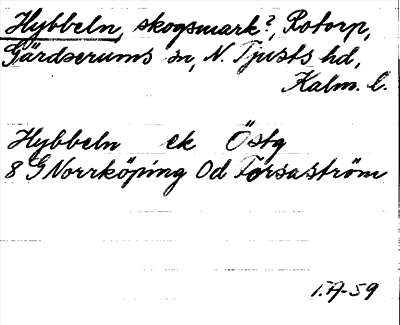 Hybbeln, skogsmark?, Rotorp,
Gärdserums sn, N. Tjusts hd,
Kalm. l.
Hybbeln ek Östg
8 G Norrköping 0d Torsaström
I.A-59